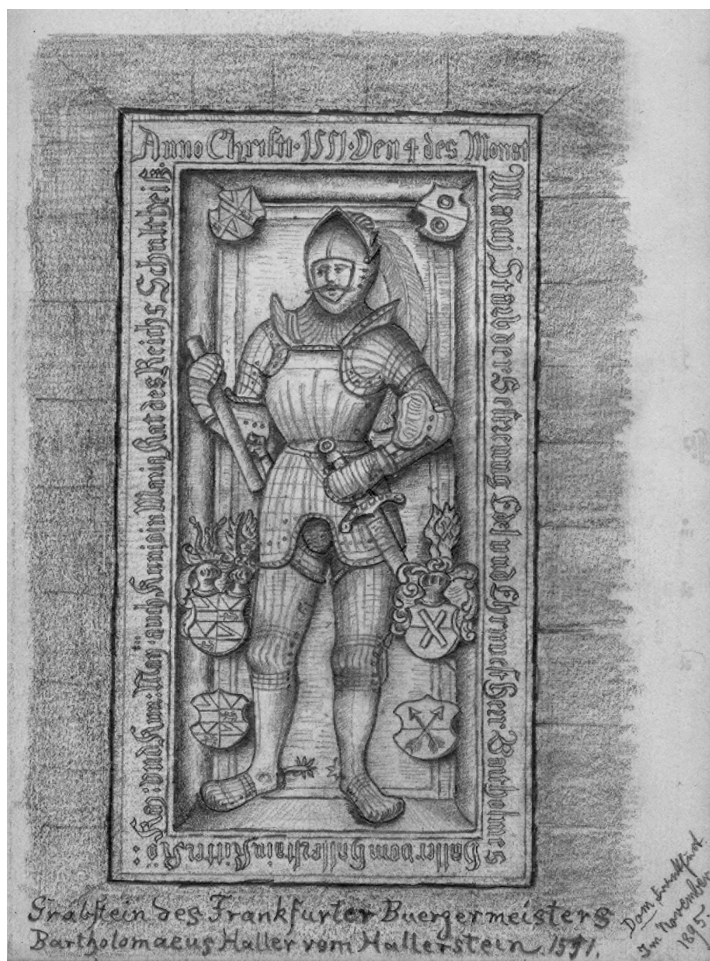 Anno Christi · 1551 · Den 4 des Monst
Maray Starb der Gestreng Edel und Ehrnuest Herr · Bartholmes
Haller vom Hallerstain Ritter Rö:
Kay: vnd Kun: May: auch Kunigin Maria Rat des Reichs Schulthei
Grabstein des Frankfurter Buergermeisters
Bartholomaeus Haller vom Hallerstein 1551.
Dom, Frankfurt
Im November
1895.